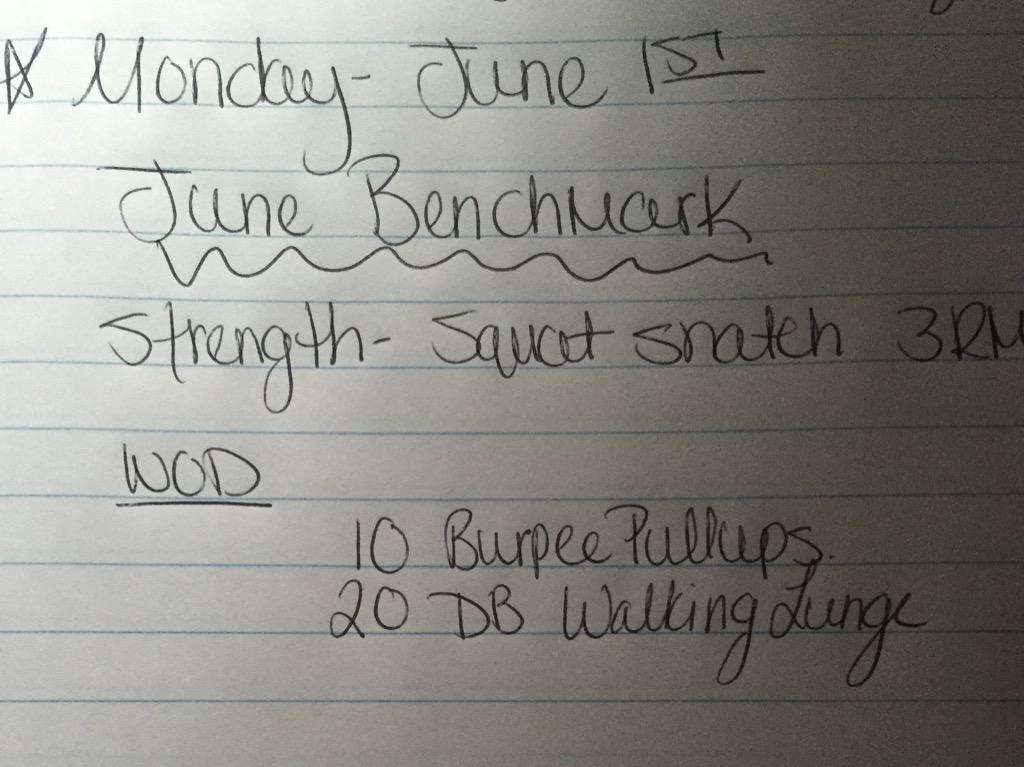 ☆ Monday- June 1ST
June Benchmark
Strength- Squat snatch 3RM
WOD
10 Burpee Pullups.
20 DB Walking Lunge